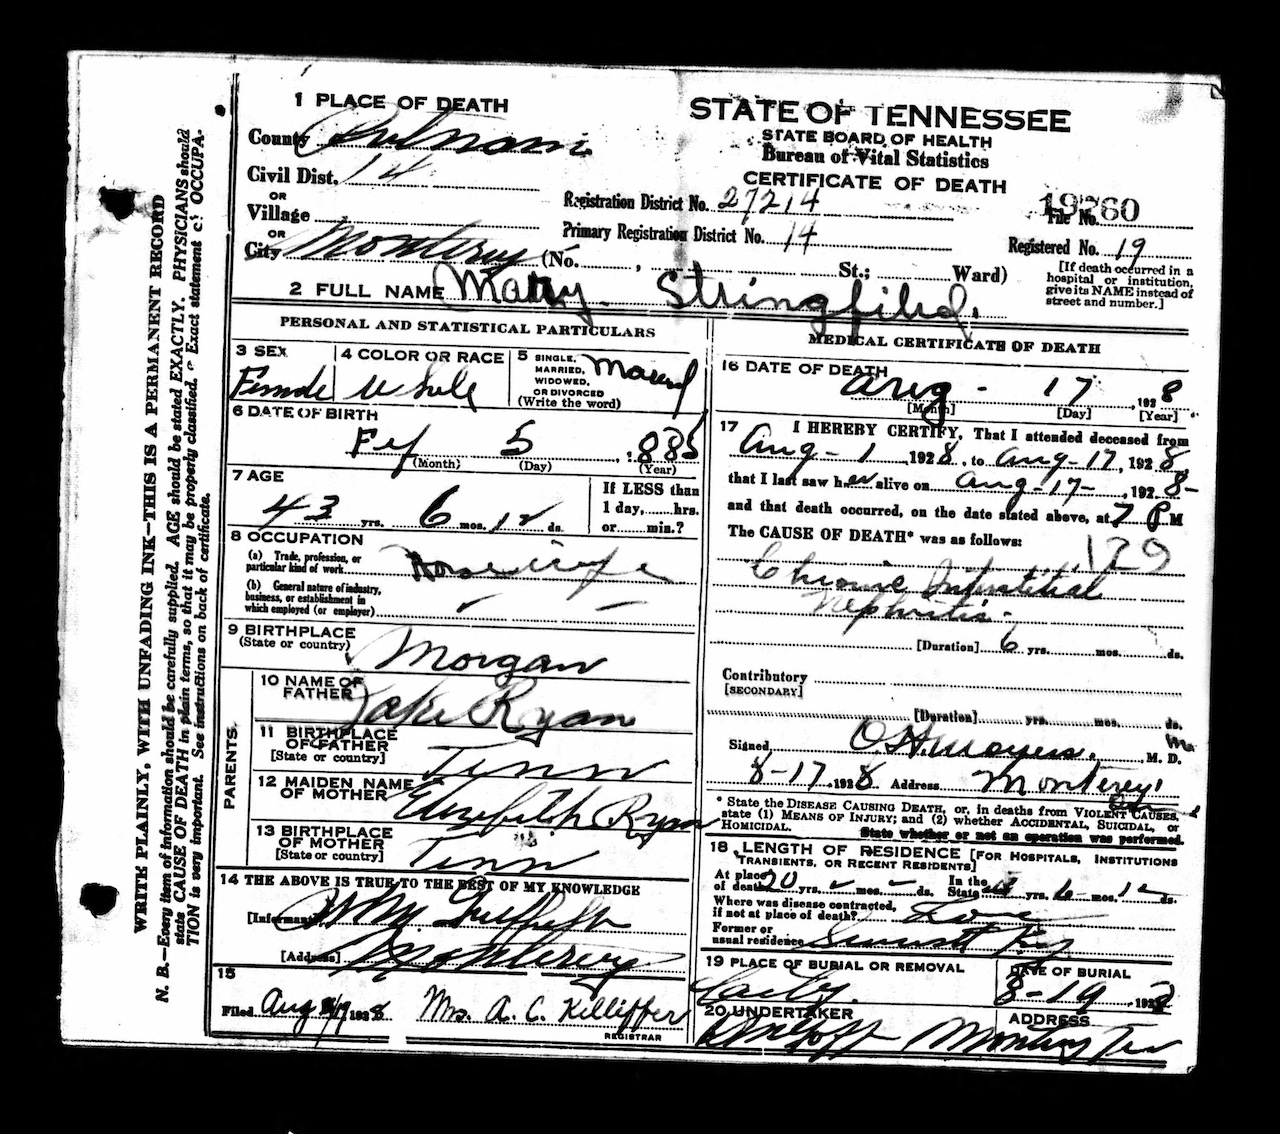 WRITE PLAINLY, WITH UNFADING INK—THIS IS A PERMANENT RECORD
N. B.—Every item of information should be carefully supplied. AGE should be stated EXACTLY. PHYSICIANS should
state CAUSE OF DEATH in plain terms, so that it may be properly classified. Exact statement of OCCUPA-
TION is very important. See instructions on back of certificate.
1 PLACE OF DEATH
County Putnam
Civil Dist. 14
OR
Village
OR
City Monterey (No. , St.; Ward)
STATE OF TENNESSEE
STATE BOARD OF HEALTH
Bureau of Vital Statistics
CERTIFICATE OF DEATH
Registration District No. 27214
File No.
Primary Registration District No. 14
Registered No. 19
[If death occurred in a
hospital or institution,
give its NAME instead of
street and number.]
2 FULL NAME Mary Stringfield.
PERSONAL AND STATISTICAL PARTICULARS
3 SEX
Female
4 COLOR OR RACE
White
5 SINGLE,
MARRIED,
WIDOWED,
OR DIVORCED
(Write the word)
Married
6 DATE OF BIRTH
5 1885
(Month) (Day) (Year)
7 AGE
43 yrs. 6 mos. 12 ds.
If LESS than
1 day, hrs.
or min.?
8 OCCUPATION
(a) Trade, profession, or
particular kind of work Housewife
(b) General nature of industry,
business, or establishment in
which employed (or employer)
9 BIRTHPLACE
(State or country)
Morgan
PARENTS
10 NAME OF
FATHER
Jake Ryan
11 BIRTHPLACE
OF FATHER
[State or country]
Tenn
12 MAIDEN NAME
OF MOTHER
Elizebith Ryan
13 BIRTHPLACE
OF MOTHER
[State or country]
Tenn
14 THE ABOVE IS TRUE TO THE BEST OF MY KNOWLEDGE
[Informant]
[Address] Monterey
15
Filed Aug 1928 Mrs. A. C. Killiffer
REGISTRAR
MEDICAL CERTIFICATE OF DEATH
16 DATE OF DEATH
Aug - 17 , 1928
[Month] [Day] [Year]
17 I HEREBY CERTIFY, That I attended deceased from
Aug - 1 1928, to Aug-17, 1928
that I last saw her alive on Aug-17-, 1928-
and that death occurred, on the date stated above, at 7 P M
The CAUSE OF DEATH* was as follows:
129
Chronic Interstitial
Nephritis-
[Duration] 6 yrs. mos. ds.
Contributory
[SECONDARY]
[Duration] yrs. mos. ds.
Signed , M. D.
8-17 1928 Address Monterey
* State the DISEASE CAUSING DEATH, or, in deaths from VIOLENT CAUSES,
state (1) MEANS OF INJURY; and (2) whether ACCIDENTAL, SUICIDAL, or
HOMICIDAL. State whether or not an operation was performed.
18 LENGTH OF RESIDENCE [FOR HOSPITALS, INSTITUTIONS
TRANSIENTS, OR RECENT RESIDENTS]
At place
of death 20 yrs. mos. ds.
In the
State yrs. 6 mos. 12 ds.
Where was disease contracted,
if not at place of death?
Former or
usual residence
19 PLACE OF BURIAL OR REMOVAL
DATE OF BURIAL
8-19 , 192
20 UNDERTAKER
ADDRESS